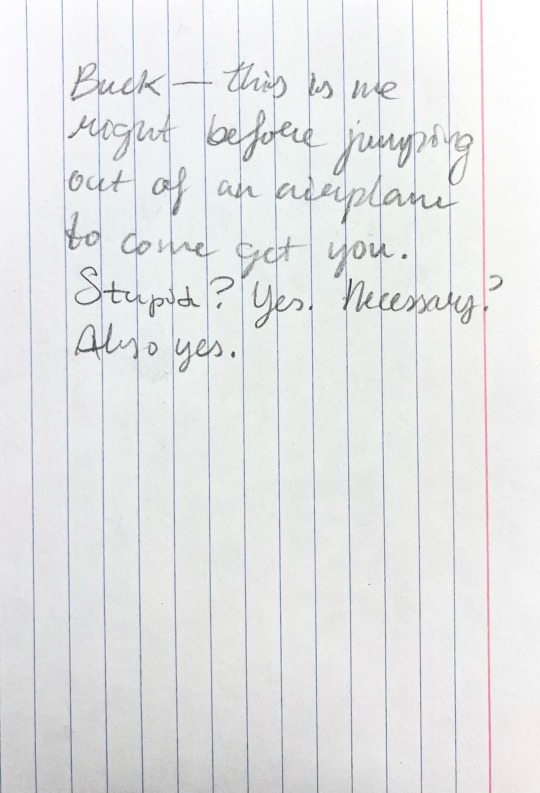 Buck — this is me
right before jumping
out of an airplane
to come get you.
Stupid? Yes. Necessary?
Also yes.